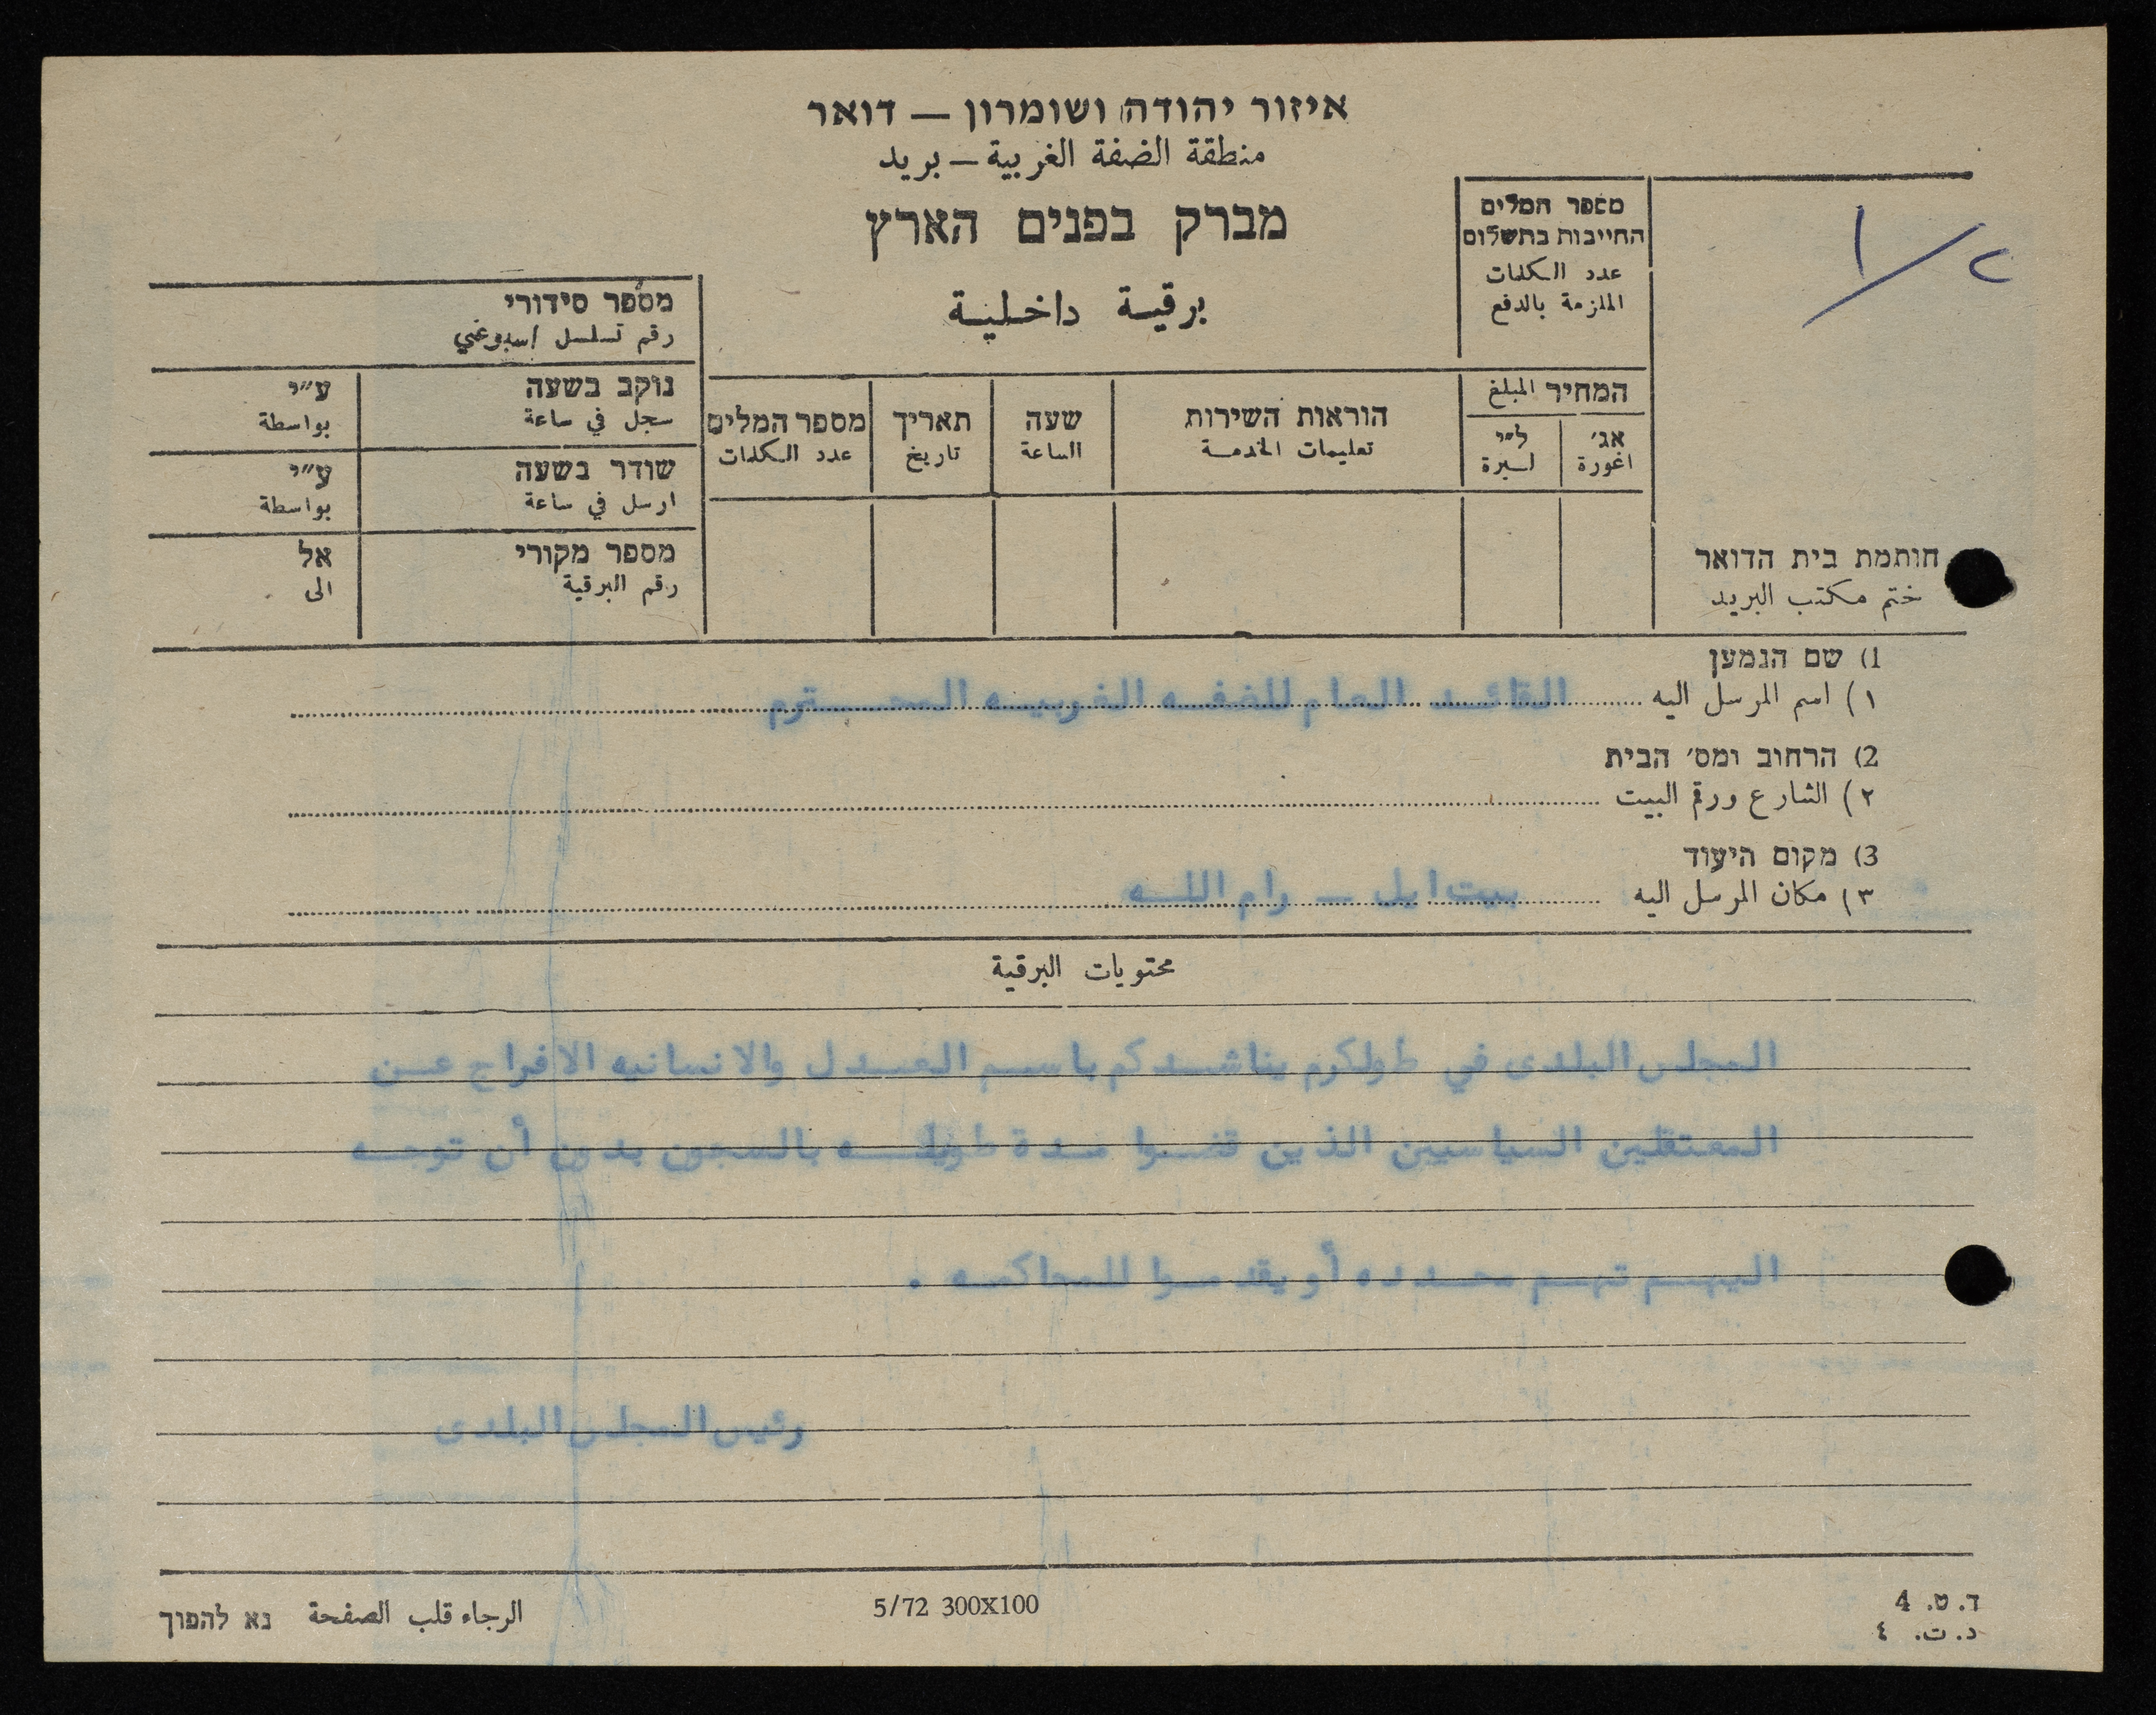 איזור יהודה ושומרון — דואר
منطقة الضفة الغربية — بريد
מברק בפנים הארץ
برقية داخلية
מספר המלים
החייבות בתשלום
عدد الكلمات
الملزمة بالدفع
١/٢
מספר סידורי
رقم تسلسل اسبوعي
נוקב בשעה ע״י
سجل في ساعة بواسطة
שודר בשעה ע״י
ارسل في ساعة بواسطة
מספר מקורי אל
رقم البرقية الى
המחיר المبلغ
אג׳ ל״י
اغورة ليرة
הוראות השירות
تعليمات الخدمة
שעה
الساعة
תאריך
تاريخ
מספר המלים
عدد الكلمات
חותמת בית הדואר
ختم مكتب البريد
1) שם הנמען
١) اسم المرسل اليه القائد العام للضفه الغربيه المحترم
2) הרחוב ומס׳ הבית
٢) الشارع ورقم البيت
3) מקום היעוד
٣) مكان المرسل اليه بيت ايل — رام الله
محتويات البرقية
المجلس البلدى في طولكرم يناشدكم باسم العدل والانسانيه الافراج عن
المعتقلين السياسيين الذين قضوا مدة طويله بالسجون بدون أن توجه
اليهم تهم محدده أو يقدموا للمحاكمه .
رئيس المجلس البلدى
ד. ט. 4
د. ت. ٤
5/72 300X100
الرجاء قلب الصفحة נא להפוך